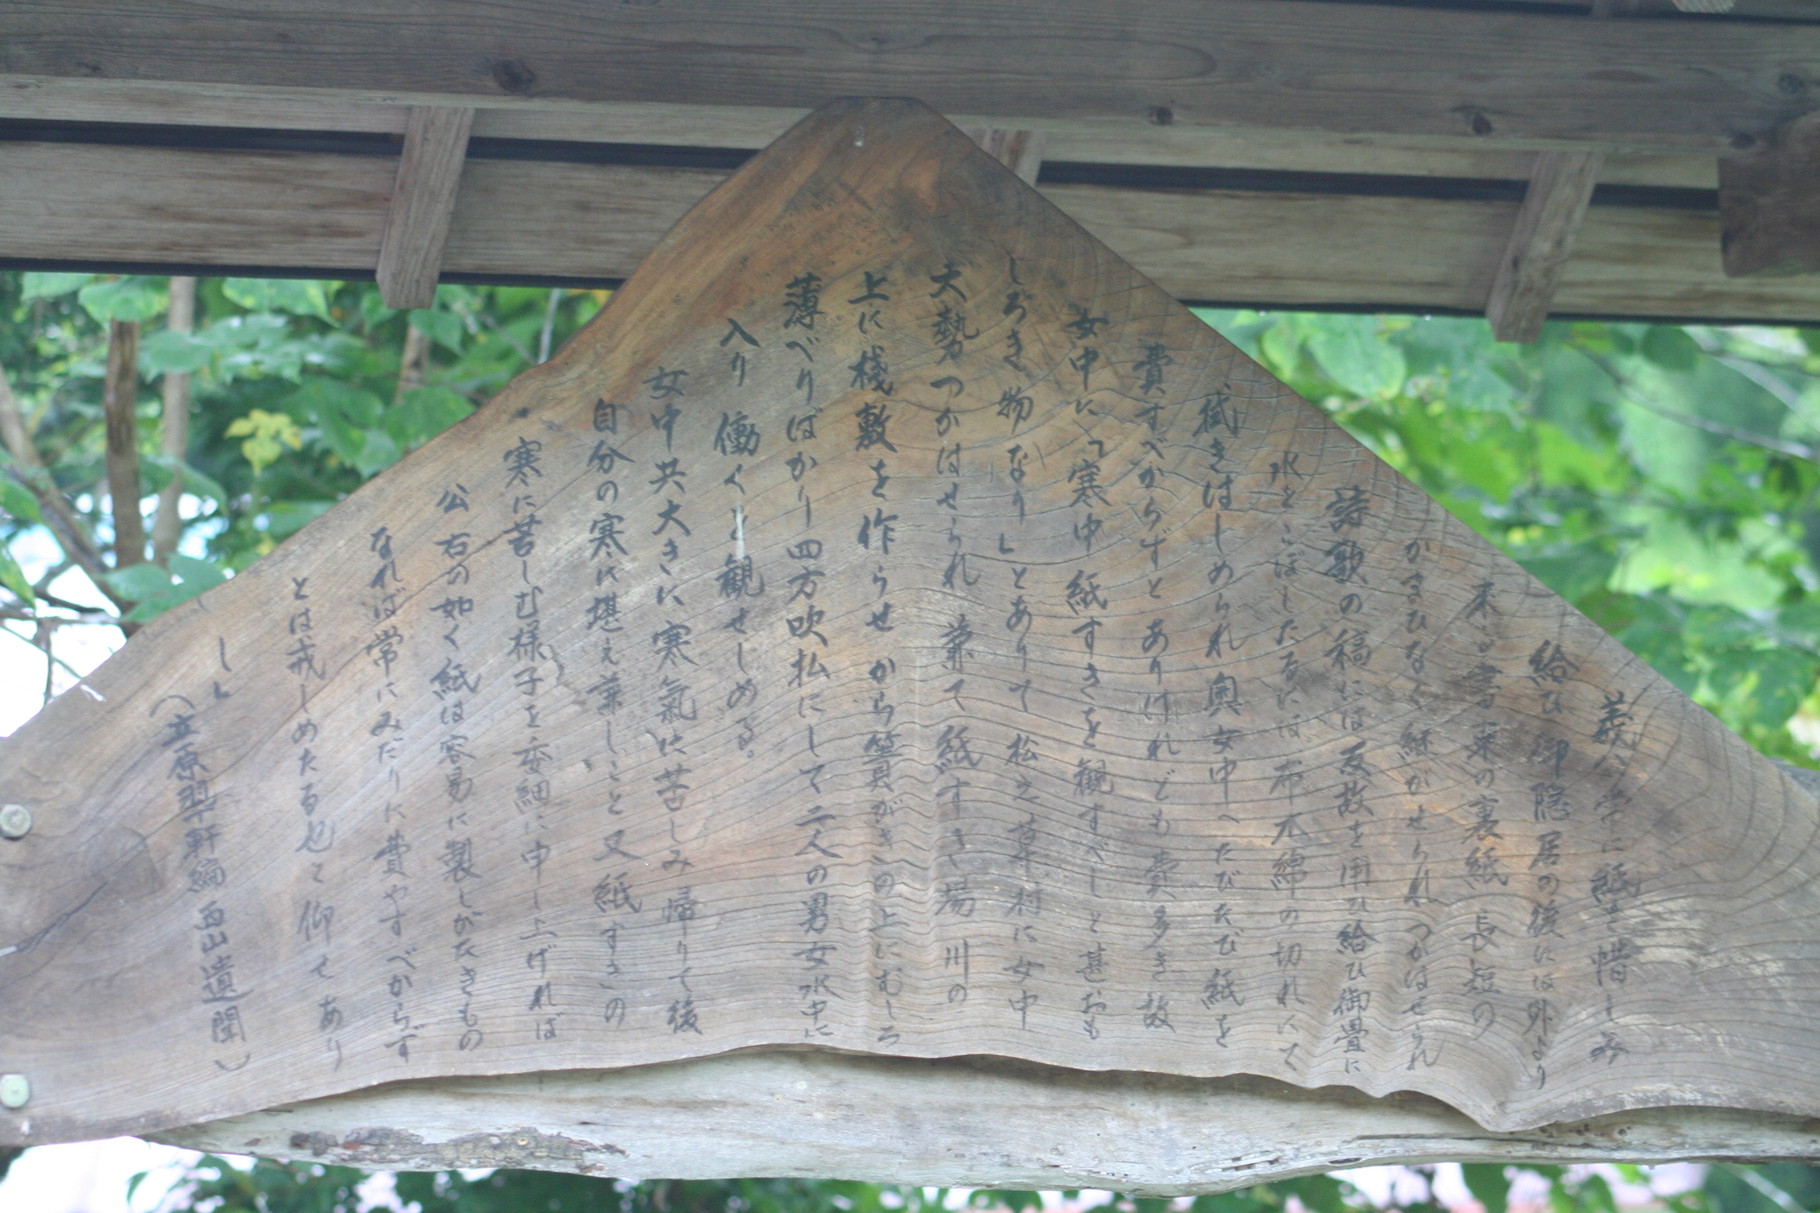 義公常に紙を惜しみ
給ひ御隠居の後には外より
来る書束の裏紙長短の
かまひなく継がせられつかはせられ
詩歌の稿には反故を用ひ給ひ御畳に
水をこぼしたるには布木綿の切れにて
拭きはしめられ奥女中へたびたび紙を
費すべからずとありけれども費多き故
女中に「寒中紙すきを観すべしと甚おも
しろき物なり」とありて松之草村に女中
大勢つかはせられ兼て紙すき場川の
上に棧敷を作らせから簀がきの上にむしろ
薄べりばかり四方吹払にして二人の男女水中に
入り働くを観せしめる。
女中共大きに寒氣に苦しみ帰りて後
自分の寒に堪え兼しことと又紙すきの
寒に苦しむ様子を委細に申し上げれば
公右の如く紙は容易に製しがたきもの
なれば常にみだりに費やすべからず
とは戒しめたる也と仰せあり
し」
(立原翠軒編西山遺聞)